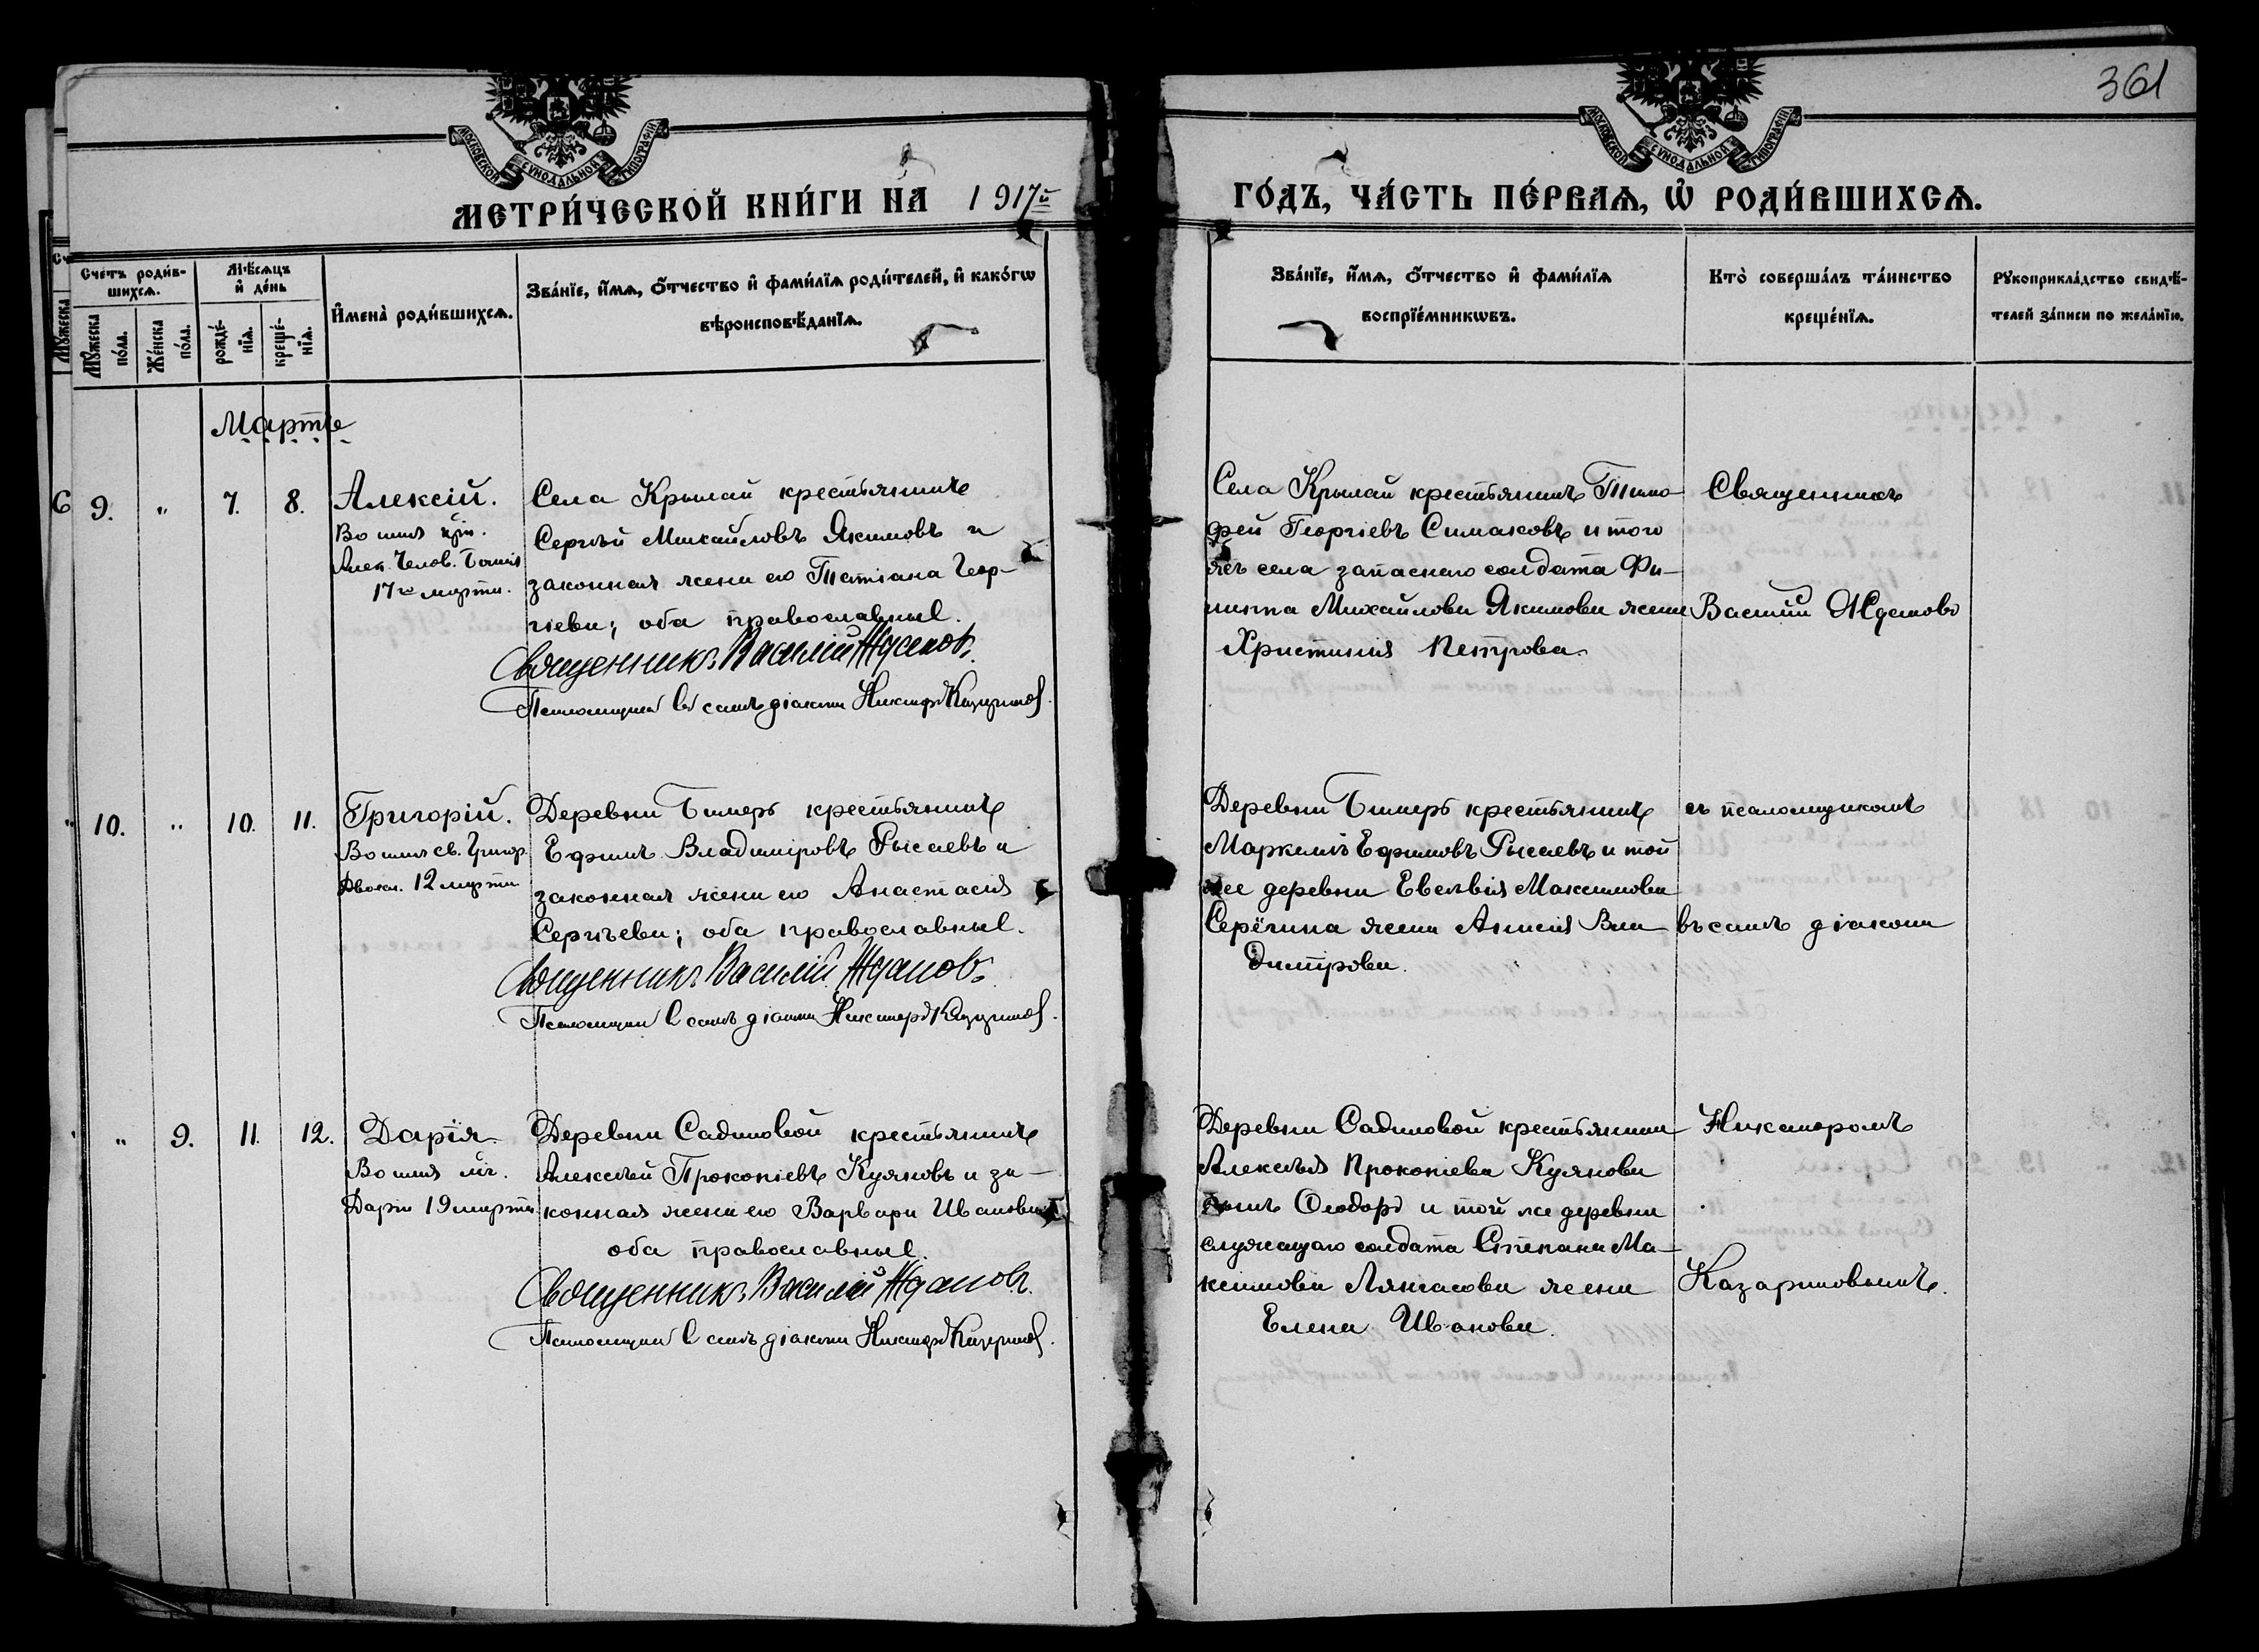 361
МОСКОВСКОЙ СѴНОДАЛЬНОЙ ТИПОГРАФІИ
МОСКОВСКОЙ СѴНОДАЛЬНОЙ ТИПОГРАФІИ
МЕТРИ́ЧЕСКОЙ КНИ́ГИ НА 1917й
ГО́ДЪ, ЧА́СТЬ ПЕ́РВАѦ, Ѿ РОДИ́ВШИХСѦ.
Сче́тъ роди́в-
шихсѧ.
Мꙋ́жеска по́ла.
Же́нска по́ла.
Мѣ́сѧцъ и҆ де́нь
рожде́-нїѧ.
креще́-нїѧ.
И҆мена̀ роди́вшихсѧ.
Зва́нїе, и҆́мѧ, ѻ҆́тчество и҆ фами́лїѧ роди́телей, и҆ како́гѡ
вѣроисповѣ́данїѧ.
Зва́нїе, и҆́мѧ, ѻ҆́тчество и҆ фами́лїѧ
воспрїе́мникѡвъ.
Кто̀ соверша́лъ та́инство
креще́нїѧ.
Рꙋкоприкла́дство свидѣ́-
телей за́писи по жела́нїю.
Мартъ
9. " 7. 8. Алексій.
Во имя прп.
Алек. Челов. Божія
17го марта.
Села Крылай крестьянинъ
Сергѣй Михайловъ Якимовъ и
законная жена его Татіана Геор-
гіева; оба православные.
Священникъ Василій Ждановъ.
Псаломщикъ въ санѣ діакона Никаноръ Казариновъ.
Села Крылай крестьянинъ Тимо-
фей Георгіевъ Симаковъ и того
же села запаснаго солдата Фи-
липпа Михайлова Якимова жена
Христинія Петрова.
Священникъ
Василій Ждановъ
10. " 10. 11. Григорій.
Во имя св. Григор.
Двоесл. 12 марта
Деревни Бимерь крестьянинъ
Ефимъ Владиміровъ Рысаевъ и
законная жена его Анастасія
Сергѣева; оба православные.
Священникъ Василій Ждановъ.
Псаломщикъ въ санѣ діакона Никаноръ Казариновъ.
Деревни Бимерь крестьянинъ
Ефимовъ Рысаевъ и той
же деревни Максимова
Серёгина жена Вла-
димірова.
съ псаломщикомъ
въ санѣ діакона
" 9. 11. 12. Дарія.
Во имя мч.
Даріи 19 марта
Деревни Садиловой крестьянинъ
Алексѣй Прокопіевъ Куяновъ и за-
конная жена его Варвара Иванова
оба православные.
Священникъ Василій Ждановъ.
Псаломщикъ въ санѣ діакона Никаноръ Казариновъ.
Деревни Садиловой крестьянина
Алексѣя Прокопіева Куянова
сынъ Ѳеодоръ и той же деревни
служащаго солдата Степана Ма-
ксимова жена
Елена Иванова.
Никаноромъ
Казариновымъ.